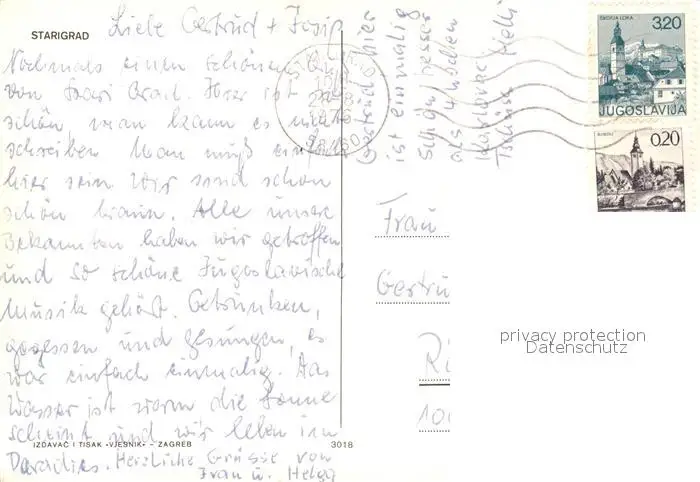 STARIGRAD
Liebe Gertrud + Josip
Nochmals einen schönen
von Stari Grad. Hier ist so
schön, man kann es nicht
schreiben man muß ein
hier sein wir sind schon
schön braun. Alle unsere
Bekannten haben wir getroffen
und so schöne Jugoslavische
Musik gehört. Getrunken,
gegessen und gesungen, es
war einfach einmalig. Das
Wasser ist warm die Sonne
scheint und wir leben im
Paradies. Herzliche Grüsse von
Frau u. Helga
IZDAVAČ I TISAK »VJESNIK« – ZAGREB
3018
Gertrud hier
ist einmalig
schön besser
als 4 Wochen
Karlovac
Tschüss Helli
ŠKOFJA LOKA
3,20
JUGOSLAVIJA
0,20
Frau
Gertru
privacy protection
Datenschutz